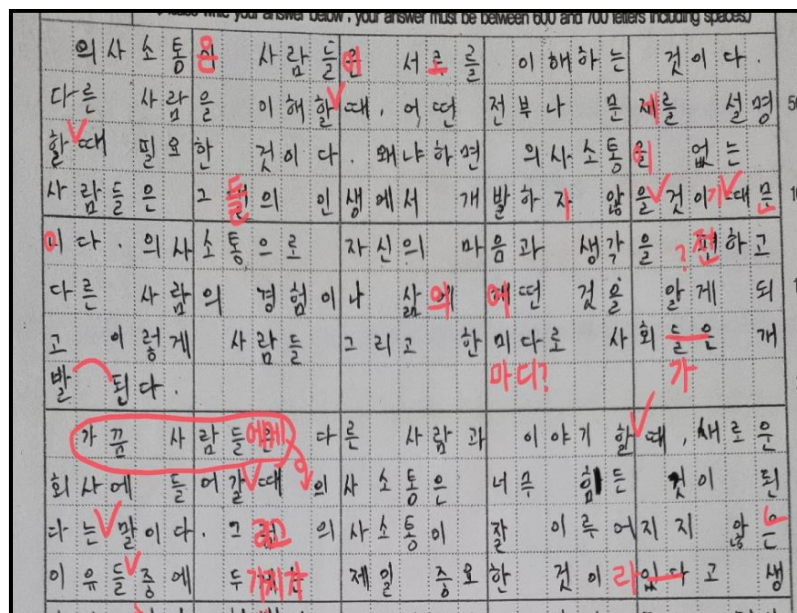 your answer below , your answer must be between 600 and 700 letters including spaces.)
의사소통은 사람들이 서로를 이해하는 것이다.
다른 사람을 이해할때, 어떤 전부나 문제를 설명
할때 필요한 것이다. 왜냐하면 의사소통이 없는
사람들은 그들의 인생에서 개발하지 않을것이기때문
이다. 의사소통으로 자신의 마음과 생각을 ?전하고
다른 사람의 경험이나 삶의 어떤 것을 알게 되
고 이렇게 사람들 그리고 한미다로 사회들은 개
마디? 가
발 된다.
가끔 사람들에게 다른 사람과 이야기 할때, 새로운
회사에 들어갈때 의사소통은 너무 힘든 것이 된
다는말이다. 그리고 의사소통이 잘 이루어지지 않는
이유들중에 두가지가 제일 중요한 것이라고 생